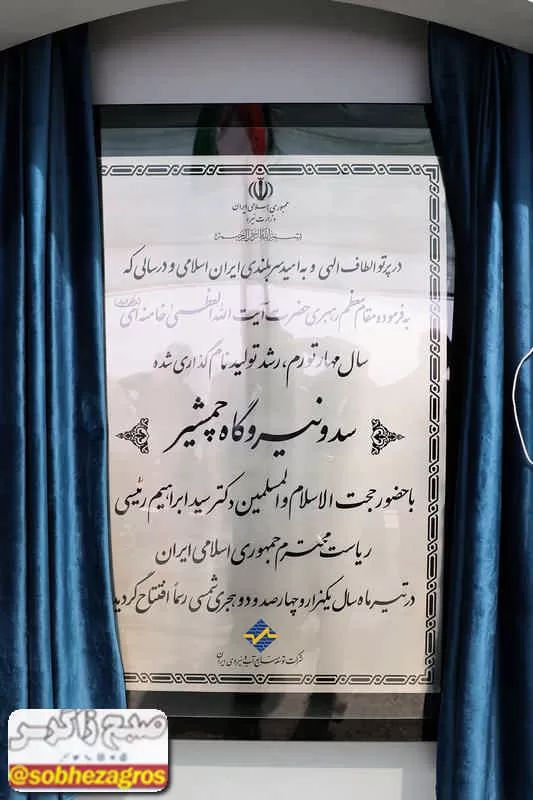 جمهوری اسلامی ایران
وزارت نیرو
در پرتو الطاف الهی و به امید سربلندی ایران اسلامی و در سالی که
به فرموده مقام معظم رهبری حضرت آیت الله العظمی خامنه ای
سال مهار تورم، رشد تولید نام گذاری شده
سد و نیروگاه چمشیر
با حضور حجت الاسلام والمسلمین دکتر سید ابراهیم رئیسی
ریاست محترم جمهوری اسلامی ایران
در تیر ماه سال یکهزار و چهارصد و دو هجری شمسی رسماً افتتاح گردید
شرکت توسعه منابع آب و نیروی ایران
صبح زاگرس
@sobhezagros